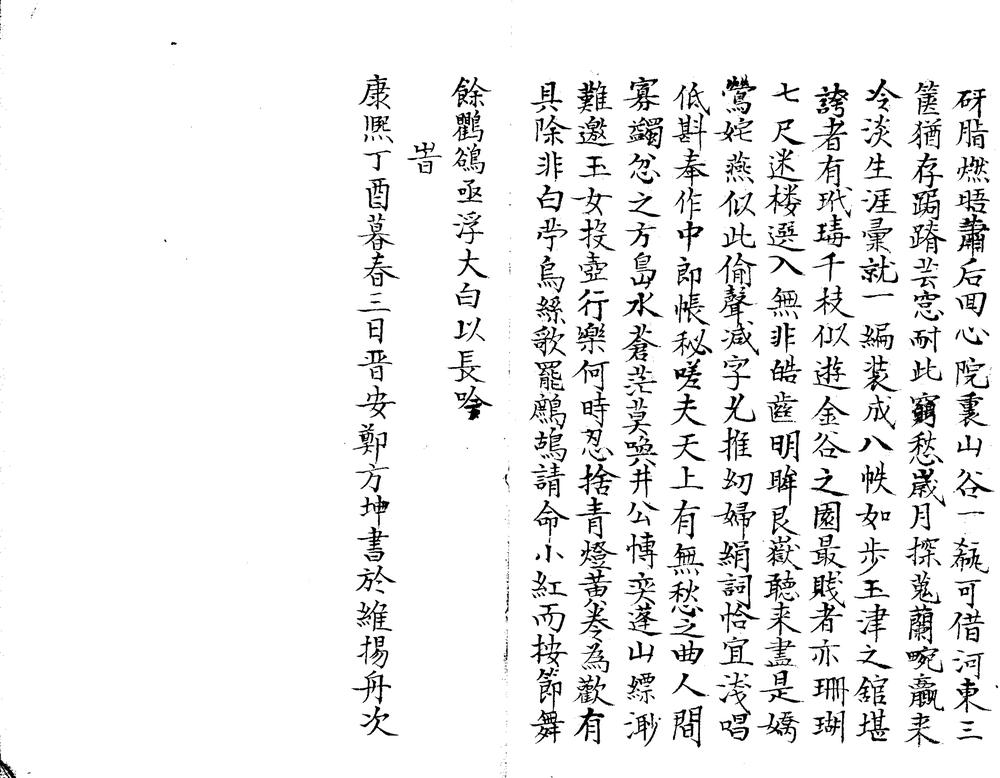 研脂燃晤蕭后囬心院裏山谷一瓻可借河東三
篋猶存跼蹐芸窓耐此窮愁歲月探蒐蘭畹贏来
冷淡生涯彚就一編装成八帙如歩玉津之舘堪
誇者有玳瑇千枝似遊金谷之園最賎者亦珊瑚
七尺迷楼選入無非皓齒明眸艮嶽聽来盡是嬌
鶯姹燕似此偷聲减字尤推幼婦絹詞恰宜浅唱
低斟奉作中郎帳秘嗟夫天上有無愁之曲人間
寡蠲忿之方島水蒼茫莫喚井公愽奕蓬山縹渺
難邀玉女投壺行樂何時忍捨青燈黄卷為歡有
具除非白苧烏絲歌罷鷓鴣請命小紅而按節舞
餘鸜鵒亟浮大白以長唫
旹
康熈丁酉暮春三日晋安鄭方坤書於維揚舟次